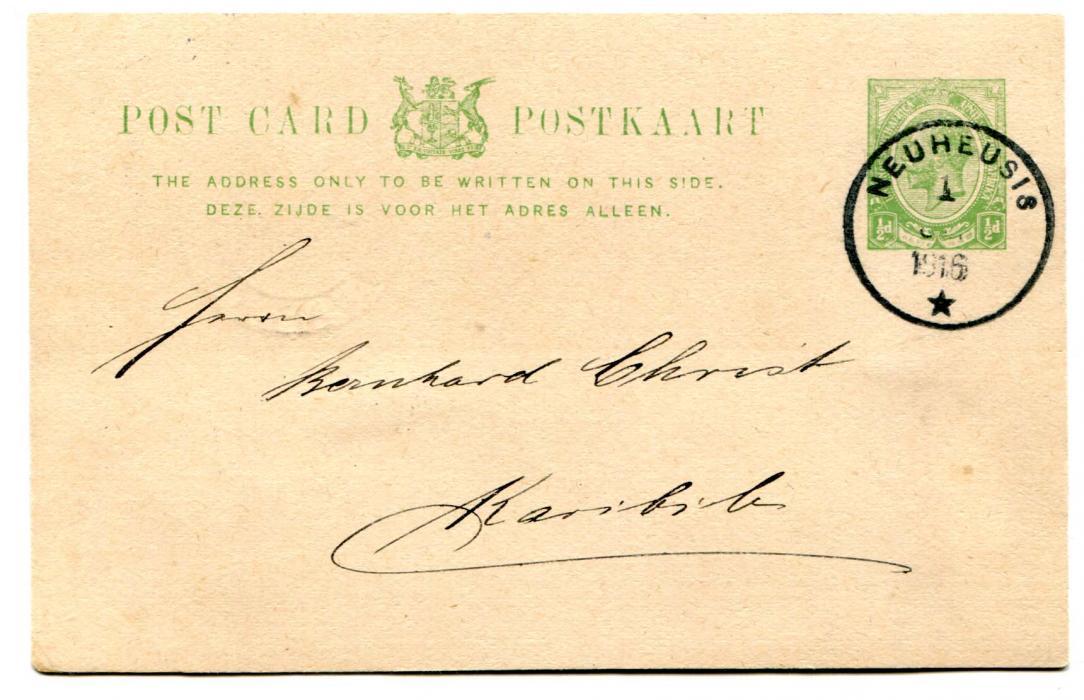 POST CARD POSTKAART
THE ADDRESS ONLY TO BE WRITTEN ON THIS SIDE.
DEZE ZIJDE IS VOOR HET ADRES ALLEEN.
½d ½d
NEUHEUSIS
1
1916
Herrn
Bernhard Christ
Karibib